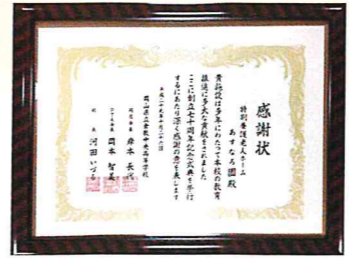 感謝状
特別養護老人ホーム
あすなろ園 殿
貴施設は多年にわたって本校の教育
推進に多大な貢献をされました
ここに創立七十周年記念式典を挙行
するにあたり深く感謝の意を表します
平成二十九年十月二十六日
岡山県立倉敷中央高等学校
校長 河田いづる